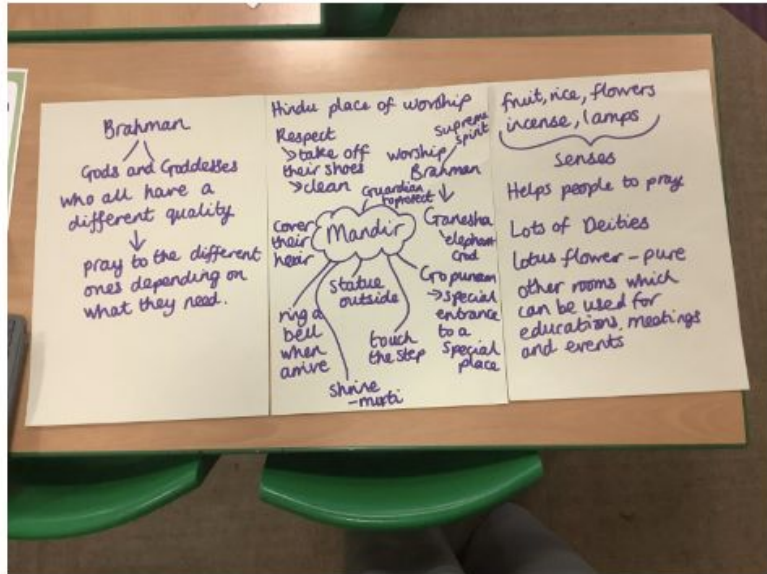 Brahman
Gods and Goddesses
who all have a
different quality
pray to the different
ones depending on
what they need.
Hindu place of worship
Respect
take off
their shoes
clean
Supreme
spirit
worship
Brahman
Guardian
to protect
Ganesha
elephant
God
Cover
their
hair
Mandir
statue
outside
Gopuram
special
entrance
to a
special
place
ring a
bell
when
arrive
touch
the step
shrine
-murti
fruit, rice, flowers
incense, lamps
senses
Helps people to pray
Lots of Deities
lotus flower - pure
other rooms which
can be used for
educations, meetings
and events